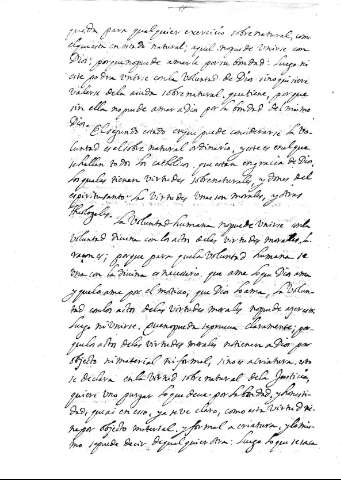 puesta para qualquier exercicio sobrenatural, como
el que esta en estado natural; aquel no puede vnirse con
Dios; porque no puede amarle por su bondad: luego ni
este podra vnirse con la voluntad de Dios sino quisiere
valerse de la aiuda sobrenatural, que tiene, porque
sin ella no puede amar a dios por la bondad del mismo
Dios.
El segundo estado en que puede considerarse la vo-
luntad es el sobrenatural ordinario, y este es en el que
se hallan todos los catholicos, que estan en gracia de Dios,
los quales tienen virtudes sobrenaturales, y dones del
espiritu santo. Las virtudes vnas son morales, y otras
theologales.
La voluntad humana no puede vnirse con la
voluntad diuina con los actos de las virtudes morales. La
razon es; porque para que la voluntad humana se
vna con la diuina es necesario, que ame lo que Dios ama
y que lo ame por el motiuo, que Dios lo ama, la volun-
tad con los actos de las virtudes morales no puede
luego ni vnirse. Que no pueda se prueua claramente; por
que los actos de las virtudes morales no tienen a Dios por
objecto ni material ni formal, sino es a criatura, esto
se declara en la virtud sobrenatural de la Justicia,
quiere vno pagar lo que deue por la bondad, y honesti-
dad, que ai en eso, ya se ve claro, como esta virtud tie-
ne por objecto material, y formal a criatura, y lo mis-
mo se puede decir de qualquier otra: luego lo que se saca